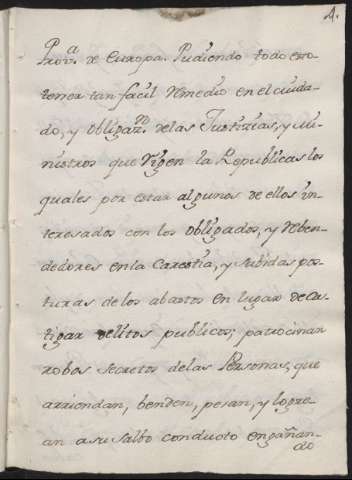 4.
Prov.ª de Europa. Pudiendo todo esto
tener tan facil remedio en el cuida-
do, y obligaz.ⁿ de las Justicias, y Mi-
nistros que rigen la Republica, los
quales por estar algunos de ellos in-
teresados con los obligados, y Reben-
dedores en la Carestia, y subidas pos-
turas de los abastos en lugar de cas-
tigar delitos publicos; patrocinan
robos secretos de las Personas, que
arriendan, benden, pesan, y logre-
an a su salbo conducto engañan-
do